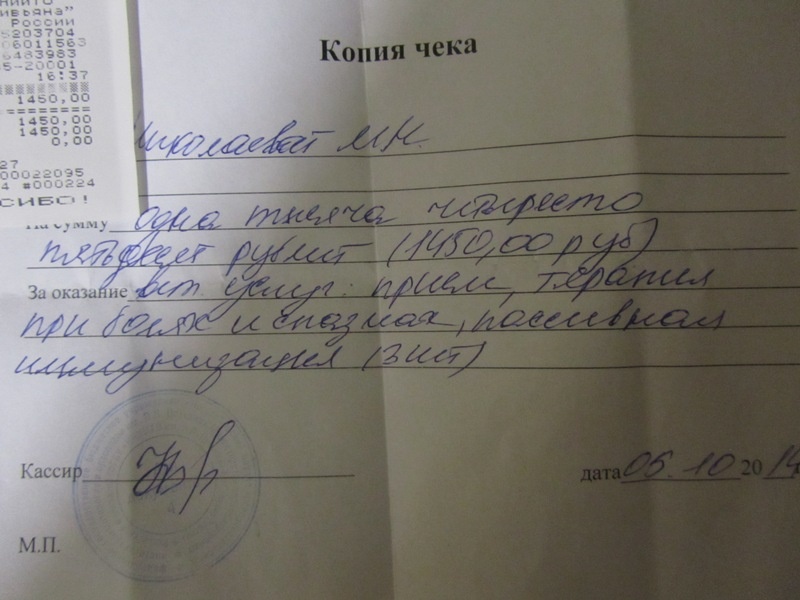 ивьяна"
России
5203704
06011563
6483983
5-20001
16:37
1450,00
========
1450,00
1450,00
0,00
27
00022095
4 #000224
СИБО!
Копия чека
Николаевой М.Н.
На сумму одна тысяча четыресто
пятьдесят рублей (1450,00 руб)
За оказание вет. услуг: прием, терапия
при болях и спазмах, пассивная
иммунизация (3 шт)
Кассир
дата 05.10 2014
М.П.